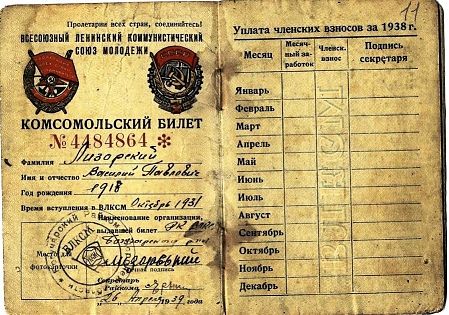 Пролетарии всех стран, соединяйтесь!
ВСЕСОЮЗНЫЙ ЛЕНИНСКИЙ КОММУНИСТИЧЕСКИЙ
СОЮЗ МОЛОДЕЖИ
КОМСОМОЛЬСКИЙ БИЛЕТ
№ 4484864 *
Фамилия Лизорский
Имя и отчество Василий Павлович
Год рождения 1918
Время вступления в ВЛКСМ Октябрь 1931
Наименование организации,
выдавшей билет РК ВЛКСМ
Место для
фотокарточки
Личная подпись
Секретарь
Райкома
26 Апреля 1939 года
ВЛКСМ
11
Уплата членских взносов за 1938 г.
Месяц Месячный заработок Членск. взнос Подпись секретаря
Январь
Февраль
Март
Апрель
Май
Июнь
Июль
Август
Сентябрь
Октябрь
Ноябрь
Декабрь